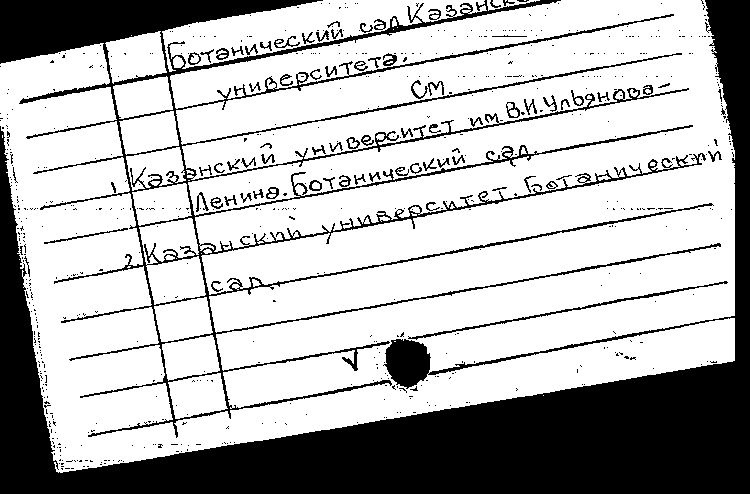 Ботанический сад Казанско
университета.
См.
1. Казанский университет им. В.И. Ульянова-
Ленина. Ботанический сад.
2. Казанский университет. Ботанический
сад.
V